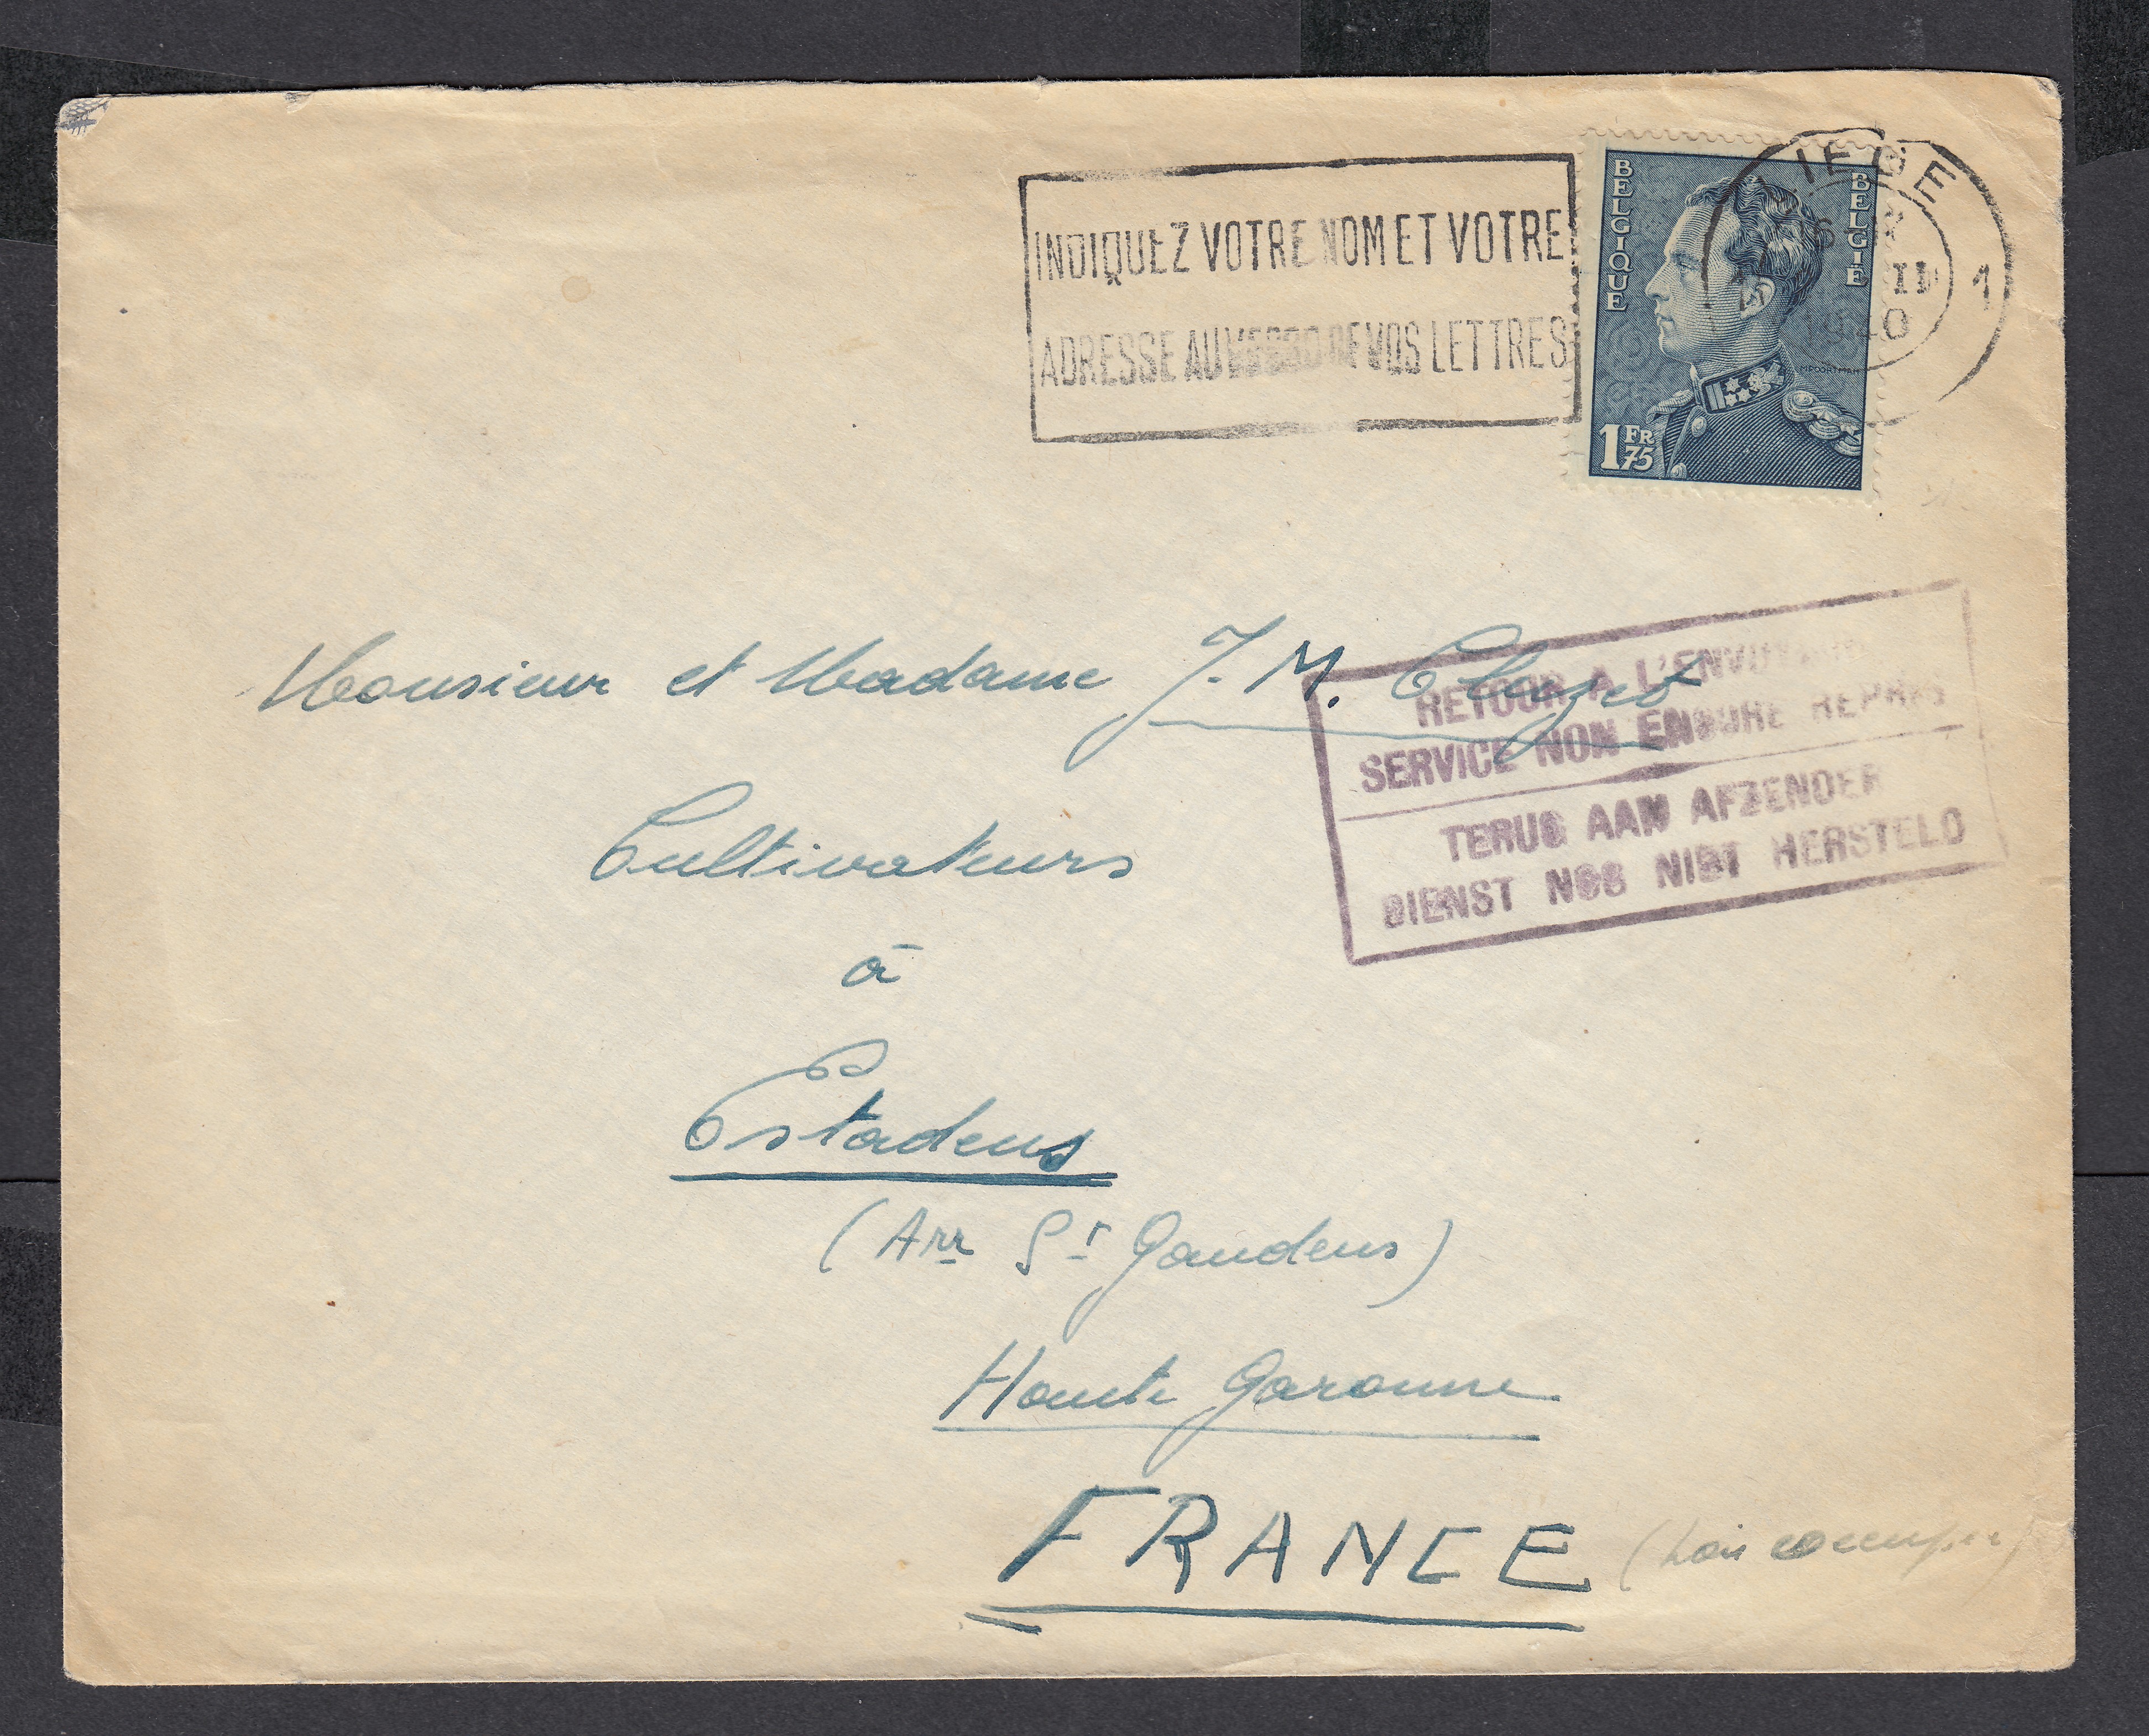 INDIQUEZ VOTRE NOM ET VOTRE
ADRESSE AU VERSO DE VOS LETTRES
BELGIQUE
BELGIË
1 FR 75
IEGE
1
1940
Monsieur et Madame J. M.
RETOUR A L'ENVOYEUR
SERVICE NON ENCORE REPRIS
TERUG AAN AFZENDER
DIENST NOG NIET HERSTELD
Cultivateurs
à
Estadens
(Arr St Gaudens)
Haute Garonne
FRANCE